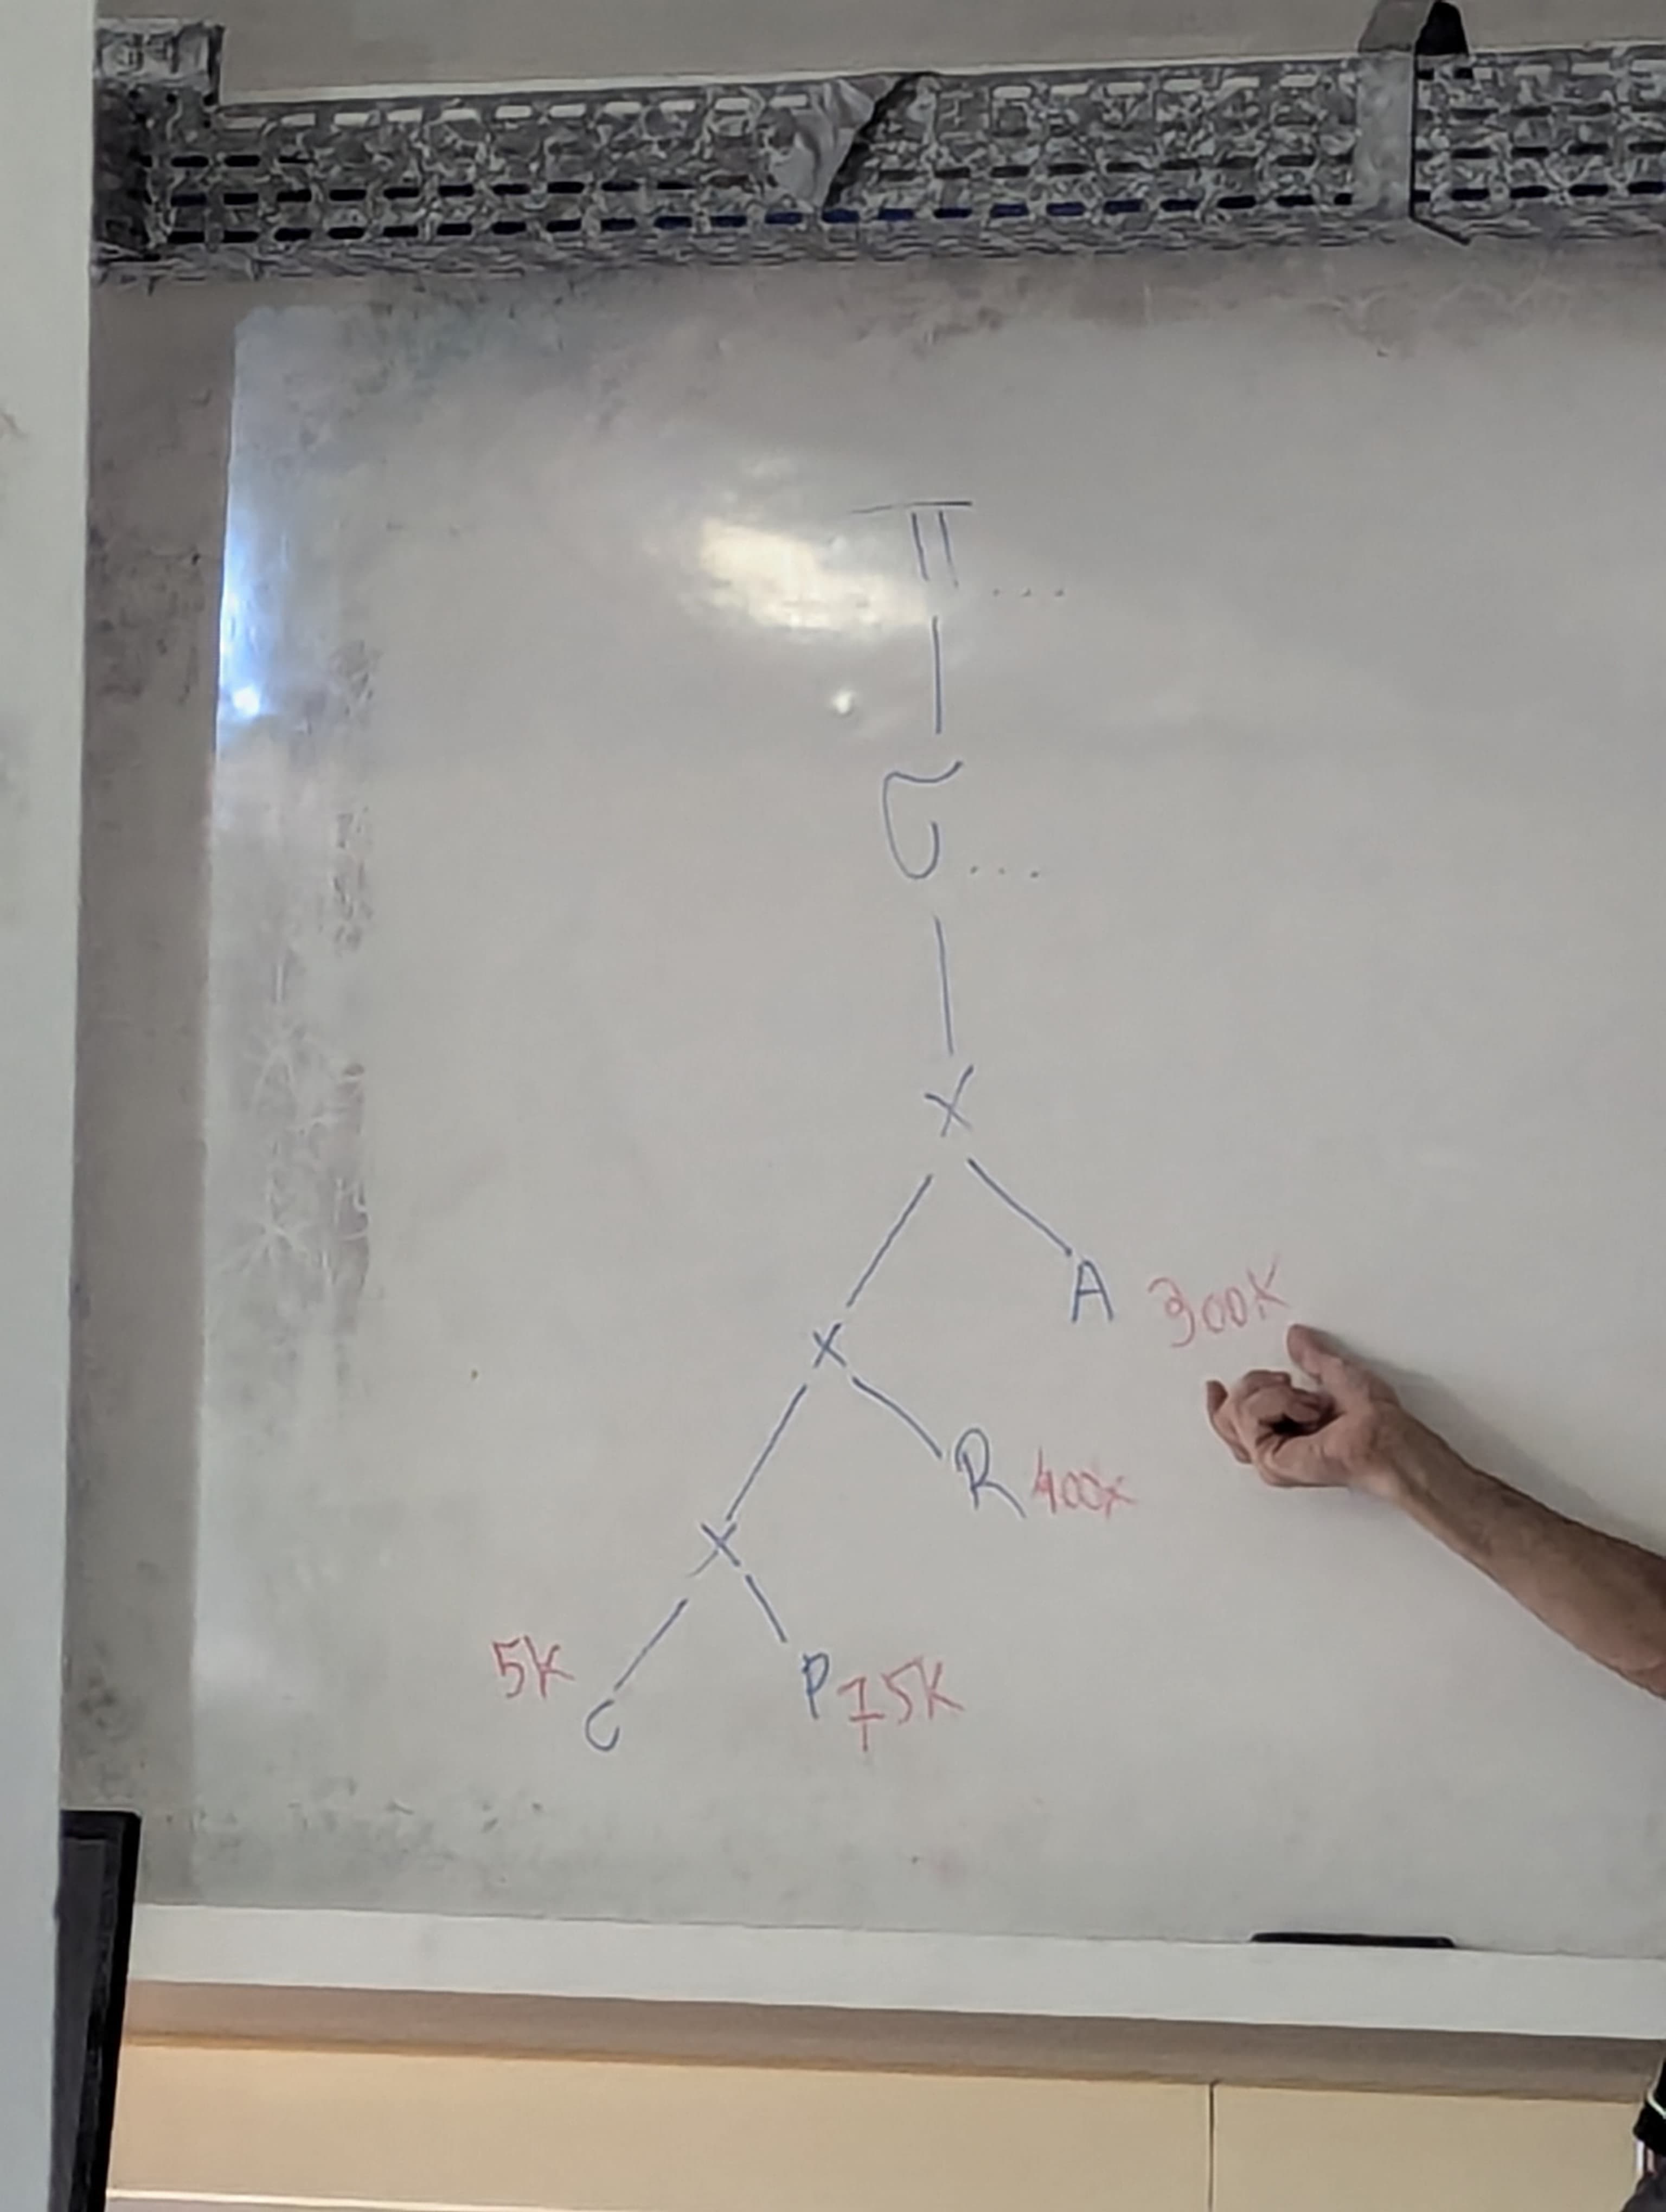 π ....
σ ...
X
A 300K
X
R 400K
X
5K C
P 75K